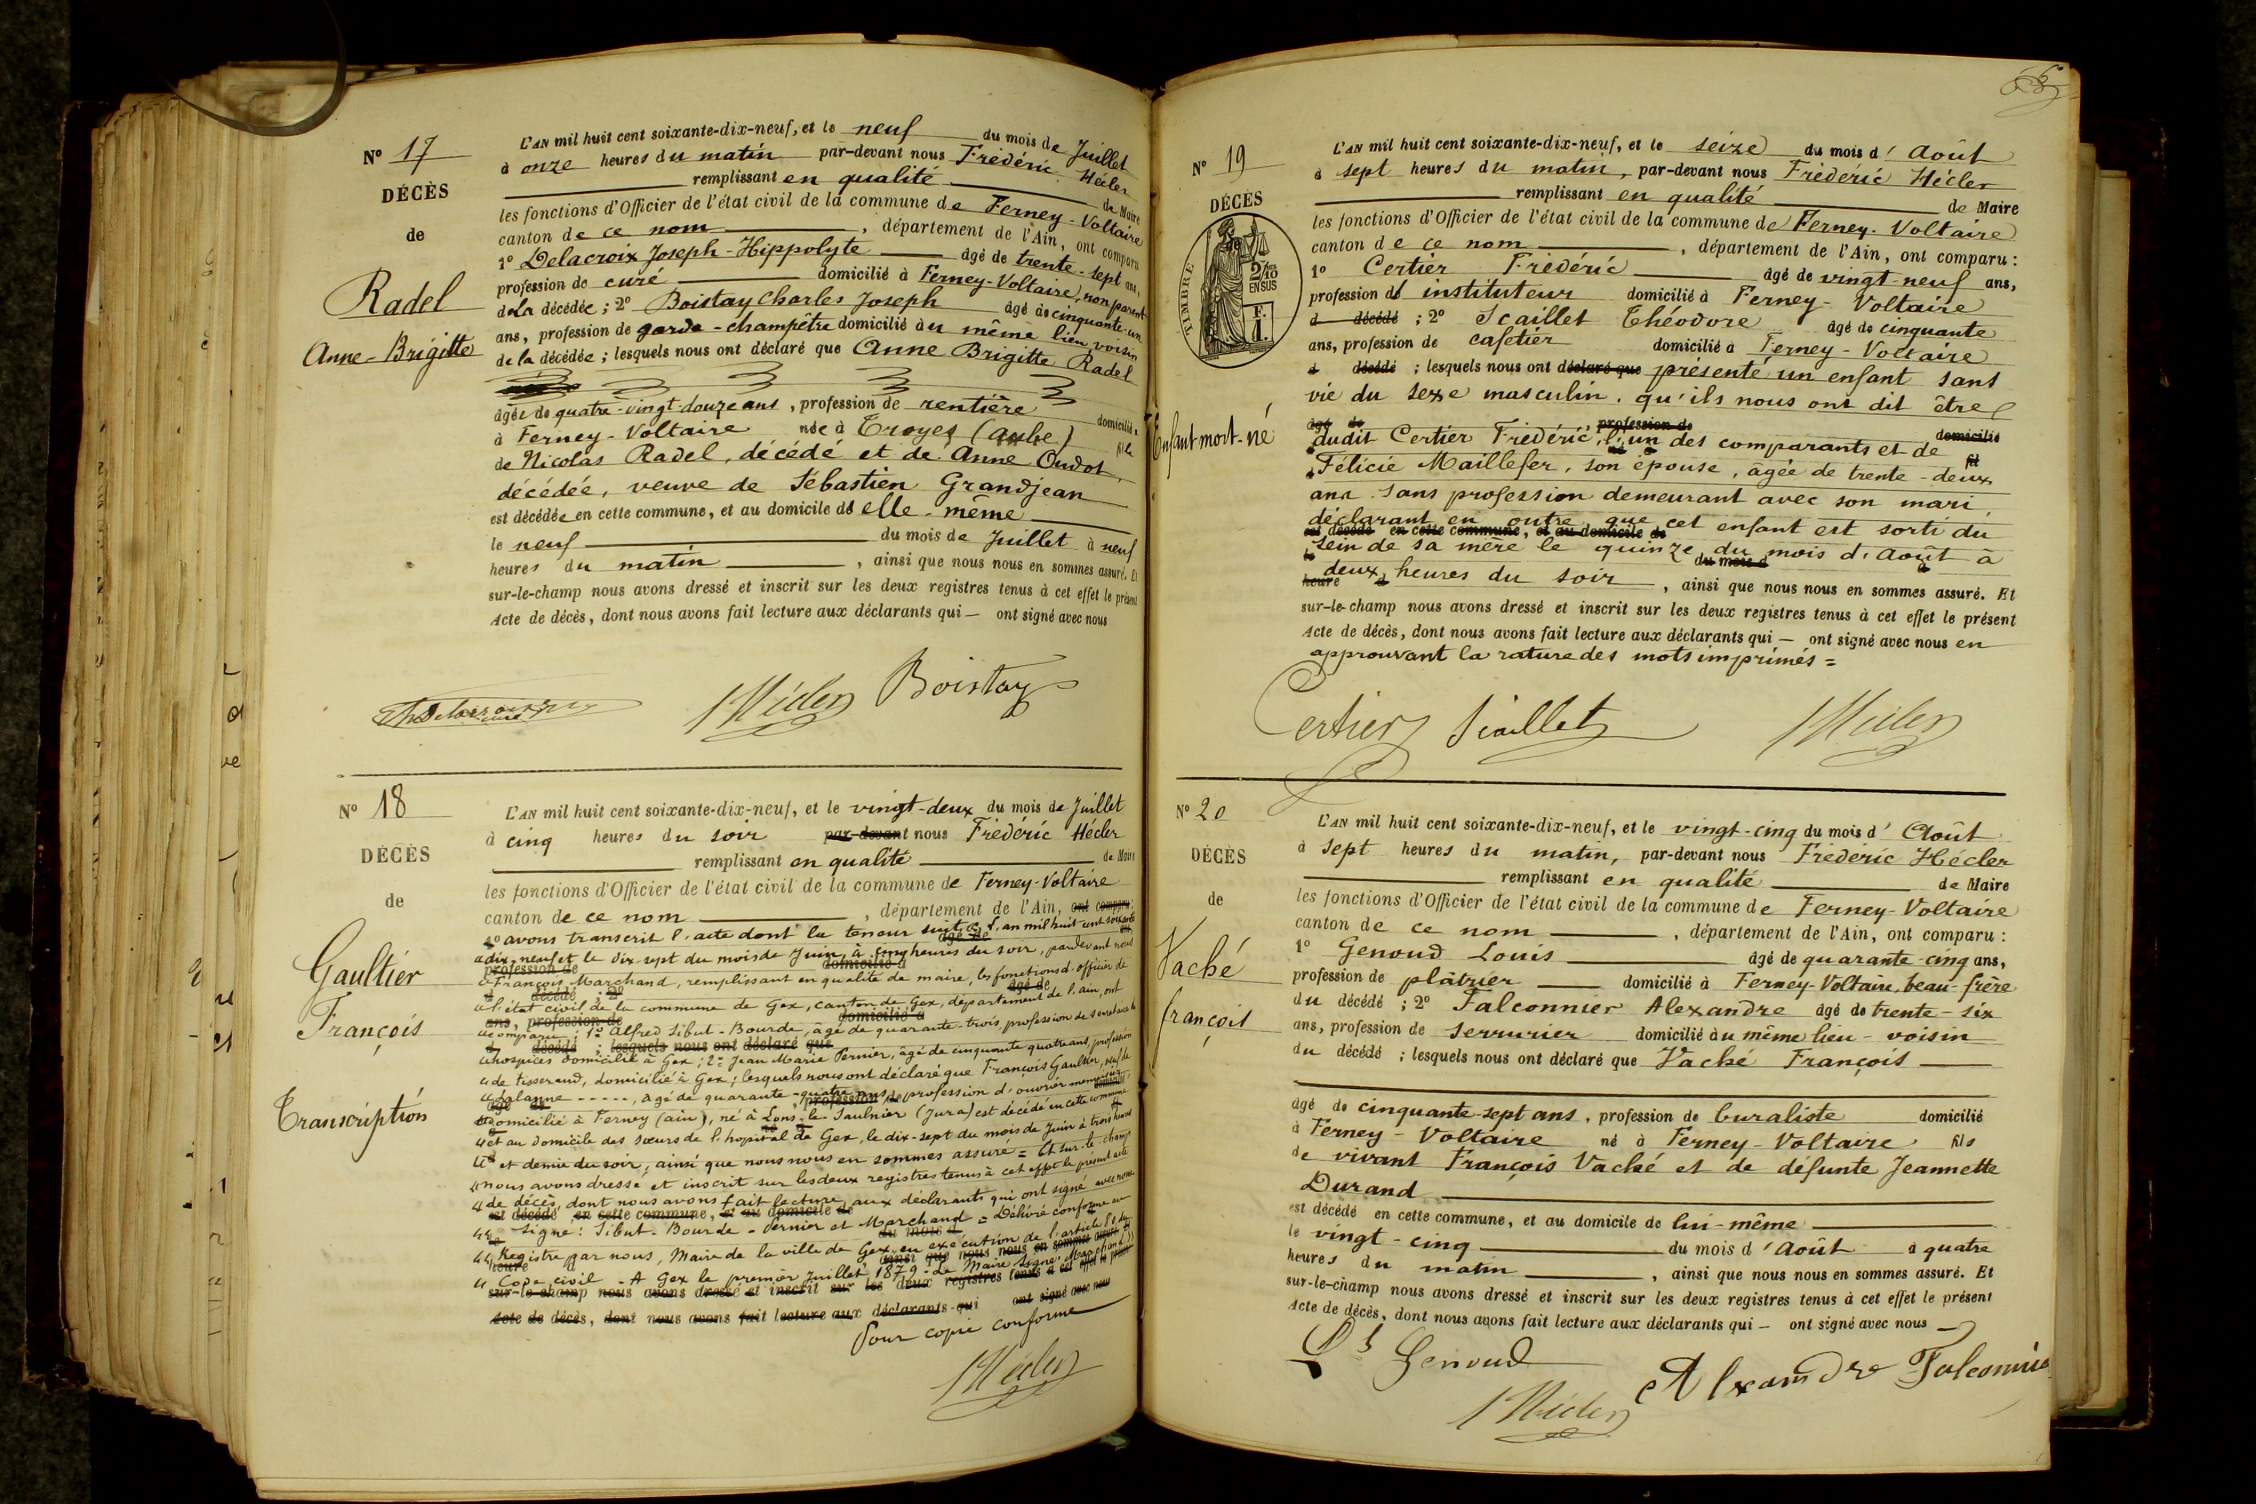 Nº 17
DÉCÈS
de
Radel
Anne-Brigitte
L'AN mil huit cent soixante-dix-neuf, et le neuf du mois de Juillet
à onze heures du matin par-devant nous Frédéric Hécler
remplissant en qualité de Maire
les fonctions d'Officier de l'état civil de la commune de Ferney-Voltaire
canton de ce nom, département de l'Ain, ont comparu
1º Delacroix Joseph-Hippolyte âgé de trente-sept ans,
profession de curé domicilié à Ferney-Voltaire, non parent
de la décédée ; 2º Boistay Charles Joseph âgé de cinquante-un
ans, profession de garde-champêtre domicilié au même lieu voisin
de la décédée ; lesquels nous ont déclaré que Anne Brigitte Radel
âgée de quatre-vingt-douze ans, profession de rentière domiciliée
à Ferney-Voltaire née à Troyes (aube) fille
de Nicolas Radel, décédé et de Anne Oudot,
décédée, veuve de Sébastien Grandjean
est décédée en cette commune, et au domicile de elle-même
le neuf du mois de Juillet à neuf
heures du matin, ainsi que nous nous en sommes assuré. Et
sur-le-champ nous avons dressé et inscrit sur les deux registres tenus à cet effet le présent
Acte de décès, dont nous avons fait lecture aux déclarants qui — ont signé avec nous
Hécler Boistay
Nº 18
DÉCÈS
de
Gaultier
François
Transcription
L'AN mil huit cent soixante-dix-neuf, et le vingt-deux du mois de Juillet
à cinq heures du soir par-devant nous Frédéric Hécler
remplissant en qualité de Maire
les fonctions d'Officier de l'état civil de la commune de Ferney-Voltaire
canton de ce nom, département de l'Ain, ont comparu
1º avons transcrit l'acte dont la teneur suit : " L'an mil huit cent soixante
" dix-neuf et le dix-sept du mois de Juin, à cinq heures du soir, par devant nous
" François Marchand, remplissant en qualité de maire, les fonctions d'officier de
" l'état civil de la commune de Gex, canton de Gex, département de l'ain, ont
" comparu : 1º Alfred Sibut-Bourde, âgé de quarante-trois profession de
" hospices domicilié à Gex ; 2º Jean Marie Pernier, âgé de cinquante quatre ans, profession
" de tisserand, domicilié à Gex ; lesquels nous ont déclaré que François Gaultier, veuf de
" Lalanne - - - - -, âgé de quarante-quatre ans, profession d'ouvrier menuisier
" domicilié à Ferney (ain), né à Lons-le-Saulnier (Jura) est décédé en cette commune
" et au domicile des sœurs de l'hopital de Gex, le dix-sept du mois de Juin à trois heures
" et demie du soir, ainsi que nous nous en sommes assuré = Et sur-le-champ
" nous avons dressé et inscrit sur les deux registres tenus à cet effet le présent acte
" de décès, dont nous avons fait lecture aux déclarants qui ont signé avec nous
" Signé : Sibut-Bourde - Pernier et Marchand = Délivré conforme au
" Registre par nous, Maire de la ville de Gex, en exécution de l'article 80 du
" Code civil - A Gex le premier Juillet 1879 - Le Maire Signé Marchand "
sur-le-champ nous avons dressé et inscrit sur les deux registres tenus à cet effet le présent
Acte de décès, dont nous avons fait lecture aux déclarants qui ont signé avec nous
Pour copie conforme
Hécler
Nº 19
DÉCÈS
TIMBRE
2/10
EN SUS
F.
1.
Enfant mort-né
L'AN mil huit cent soixante-dix-neuf, et le seize du mois d'août
à sept heures du matin, par-devant nous Frédéric Hécler
remplissant en qualité de Maire
les fonctions d'Officier de l'état civil de la commune de Ferney-Voltaire
canton de ce nom, département de l'Ain, ont comparu :
1º Certier Frédéric âgé de vingt-neuf ans,
profession d'instituteur domicilié à Ferney-Voltaire
d décédé ; 2º Scaillet Théodore âgé de cinquante
ans, profession de cafetier domicilié à Ferney-Voltaire
d décédé ; lesquels nous ont déclaré que présenté un enfant sans
vie du sexe masculin, qu'ils nous ont dit être
âgé de profession de domicilié
dudit Certier Frédéric, l'un des comparants et de
Félicie Maillefer, son épouse, âgée de trente-deux
ans sans profession demeurant avec son mari,
déclarant en outre que cet enfant est sorti du
est décédé en cette commune, et au domicile de
sein de sa mère le quinze du mois d'Août à
deux heures du soir, ainsi que nous nous en sommes assuré. Et
sur-le-champ nous avons dressé et inscrit sur les deux registres tenus à cet effet le présent
Acte de décès, dont nous avons fait lecture aux déclarants qui — ont signé avec nous en
approuvant la rature des mots imprimés =
Certier Scaillet Hécler
Nº 20
DÉCÈS
de
Vaché
françois
L'AN mil huit cent soixante-dix-neuf, et le vingt-cinq du mois d'Août
à sept heures du matin, par-devant nous Frédéric Hécler
remplissant en qualité de Maire
les fonctions d'Officier de l'état civil de la commune de Ferney-Voltaire
canton de ce nom, département de l'Ain, ont comparu :
1º Genoud Louis âgé de quarante-cinq ans,
profession de plâtrier domicilié à Ferney-Voltaire, beau-frère
du décédé ; 2º Falconnier Alexandre âgé de trente-six
ans, profession de serrurier domicilié au même lieu - voisin
du décédé ; lesquels nous ont déclaré que Vaché François
âgé de cinquante-sept ans, profession de buraliste domicilié
à Ferney-Voltaire né à Ferney-Voltaire fils
de vivant François Vaché et de défunte Jeannette
Durand
est décédé en cette commune, et au domicile de lui-même
le vingt-cinq du mois d'Août à quatre
heures du matin, ainsi que nous nous en sommes assuré. Et
sur-le-champ nous avons dressé et inscrit sur les deux registres tenus à cet effet le présent
Acte de décès, dont nous avons fait lecture aux déclarants qui — ont signé avec nous
Ls Genoud Alexandre Falconnie
Hécler